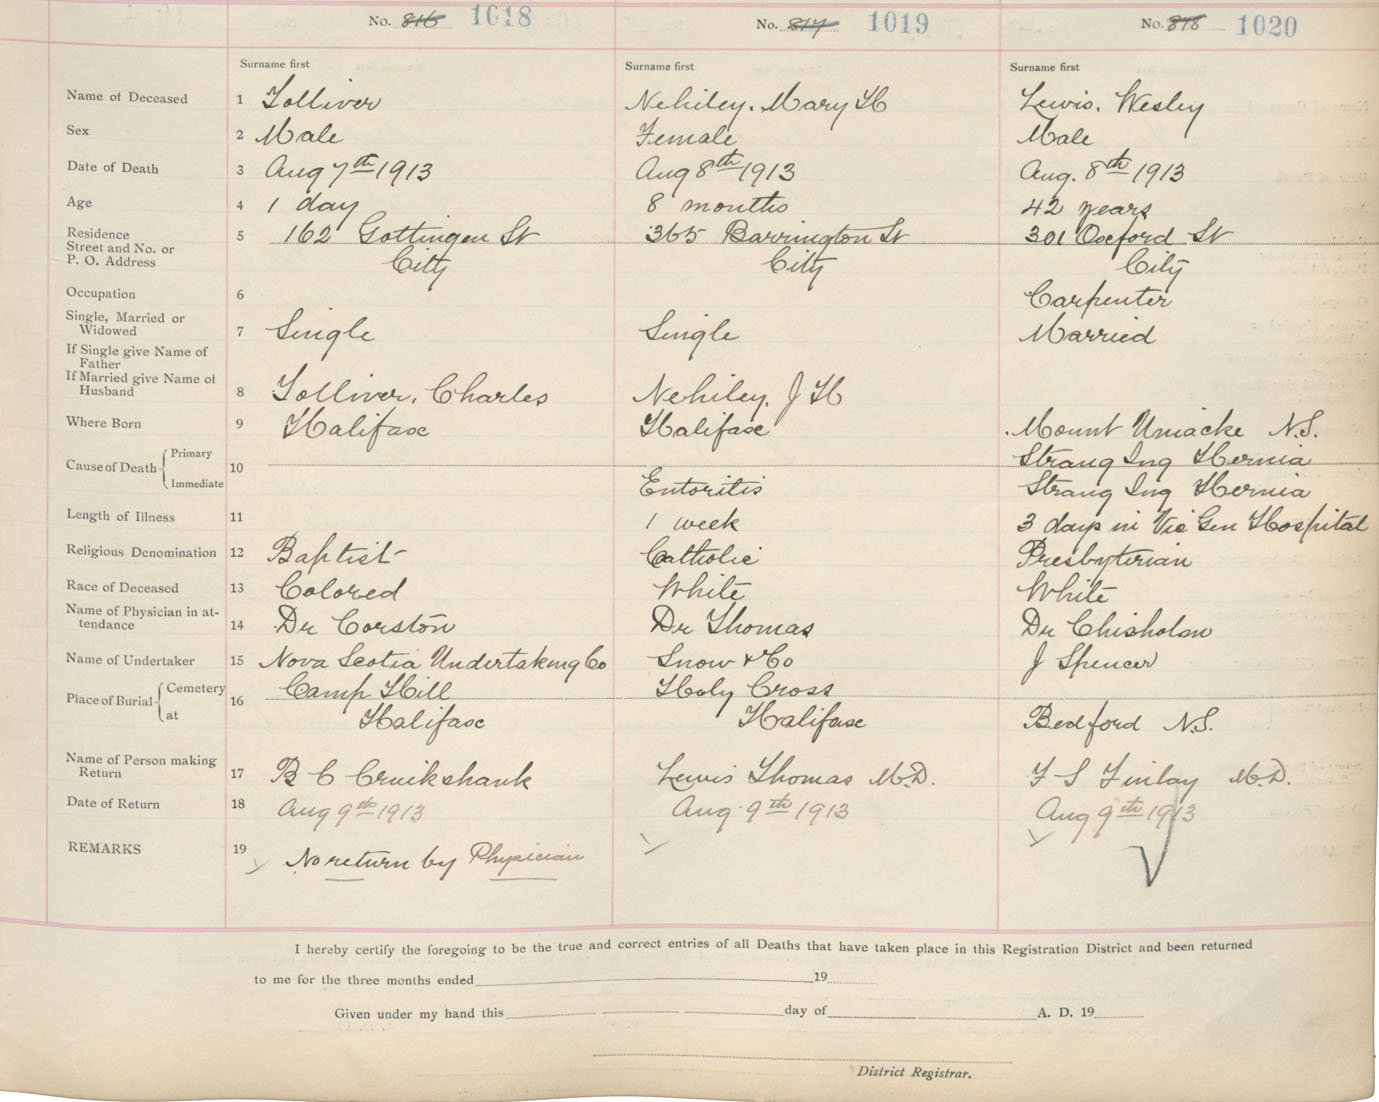 No. 816 1018 No. 817 1019 No. 818 1020
Surname first Surname first Surname first
Name of Deceased 1 Tolliver Nehiley. Mary H Lewis. Wesley
Sex 2 Male Female Male
Date of Death 3 Aug 7th 1913 Aug 8th 1913 Aug. 8th 1913
Age 4 1 day 8 months 42 years
Residence
Street and No. or 5 162 Gottingen St 365 Barrington St 301 Oxford St
P. O. Address City City City
Occupation 6 Carpenter
Single, Married or
Widowed 7 Single Single Married
If Single give Name of
Father
If Married give Name of
Husband 8 Tolliver, Charles Nehiley. J H
Where Born 9 Halifax Halifax Mount Uniacke N.S.
Cause of Death Primary 10 Strang Ing Hernia
Immediate Entoritis Strang Ing Hernia
Length of Illness 11 1 week 3 days in Vic Gen Hospital
Religious Denomination 12 Baptist Catholic Presbyterian
Race of Deceased 13 Colored White White
Name of Physician in at-
tendance 14 Dr Corston Dr Thomas Dr Chisholm
Name of Undertaker 15 Nova Scotia Undertaking Co Snow & Co J Spencer
Place of Burial Cemetery 16 Camp Hill Holy Cross
at Halifax Halifax Bedford N.S.
Name of Person making
Return 17 B C Cruikshank Lewis Thomas M.D. F S Finlay M.D.
Date of Return 18 Aug 9th 1913 Aug 9th 1913 Aug 9th 1913
REMARKS 19 No return by Physician
I hereby certify the foregoing to be the true and correct entries of all Deaths that have taken place in this Registration District and been returned
to me for the three months ended 19
Given under my hand this day of A. D. 19
District Registrar.